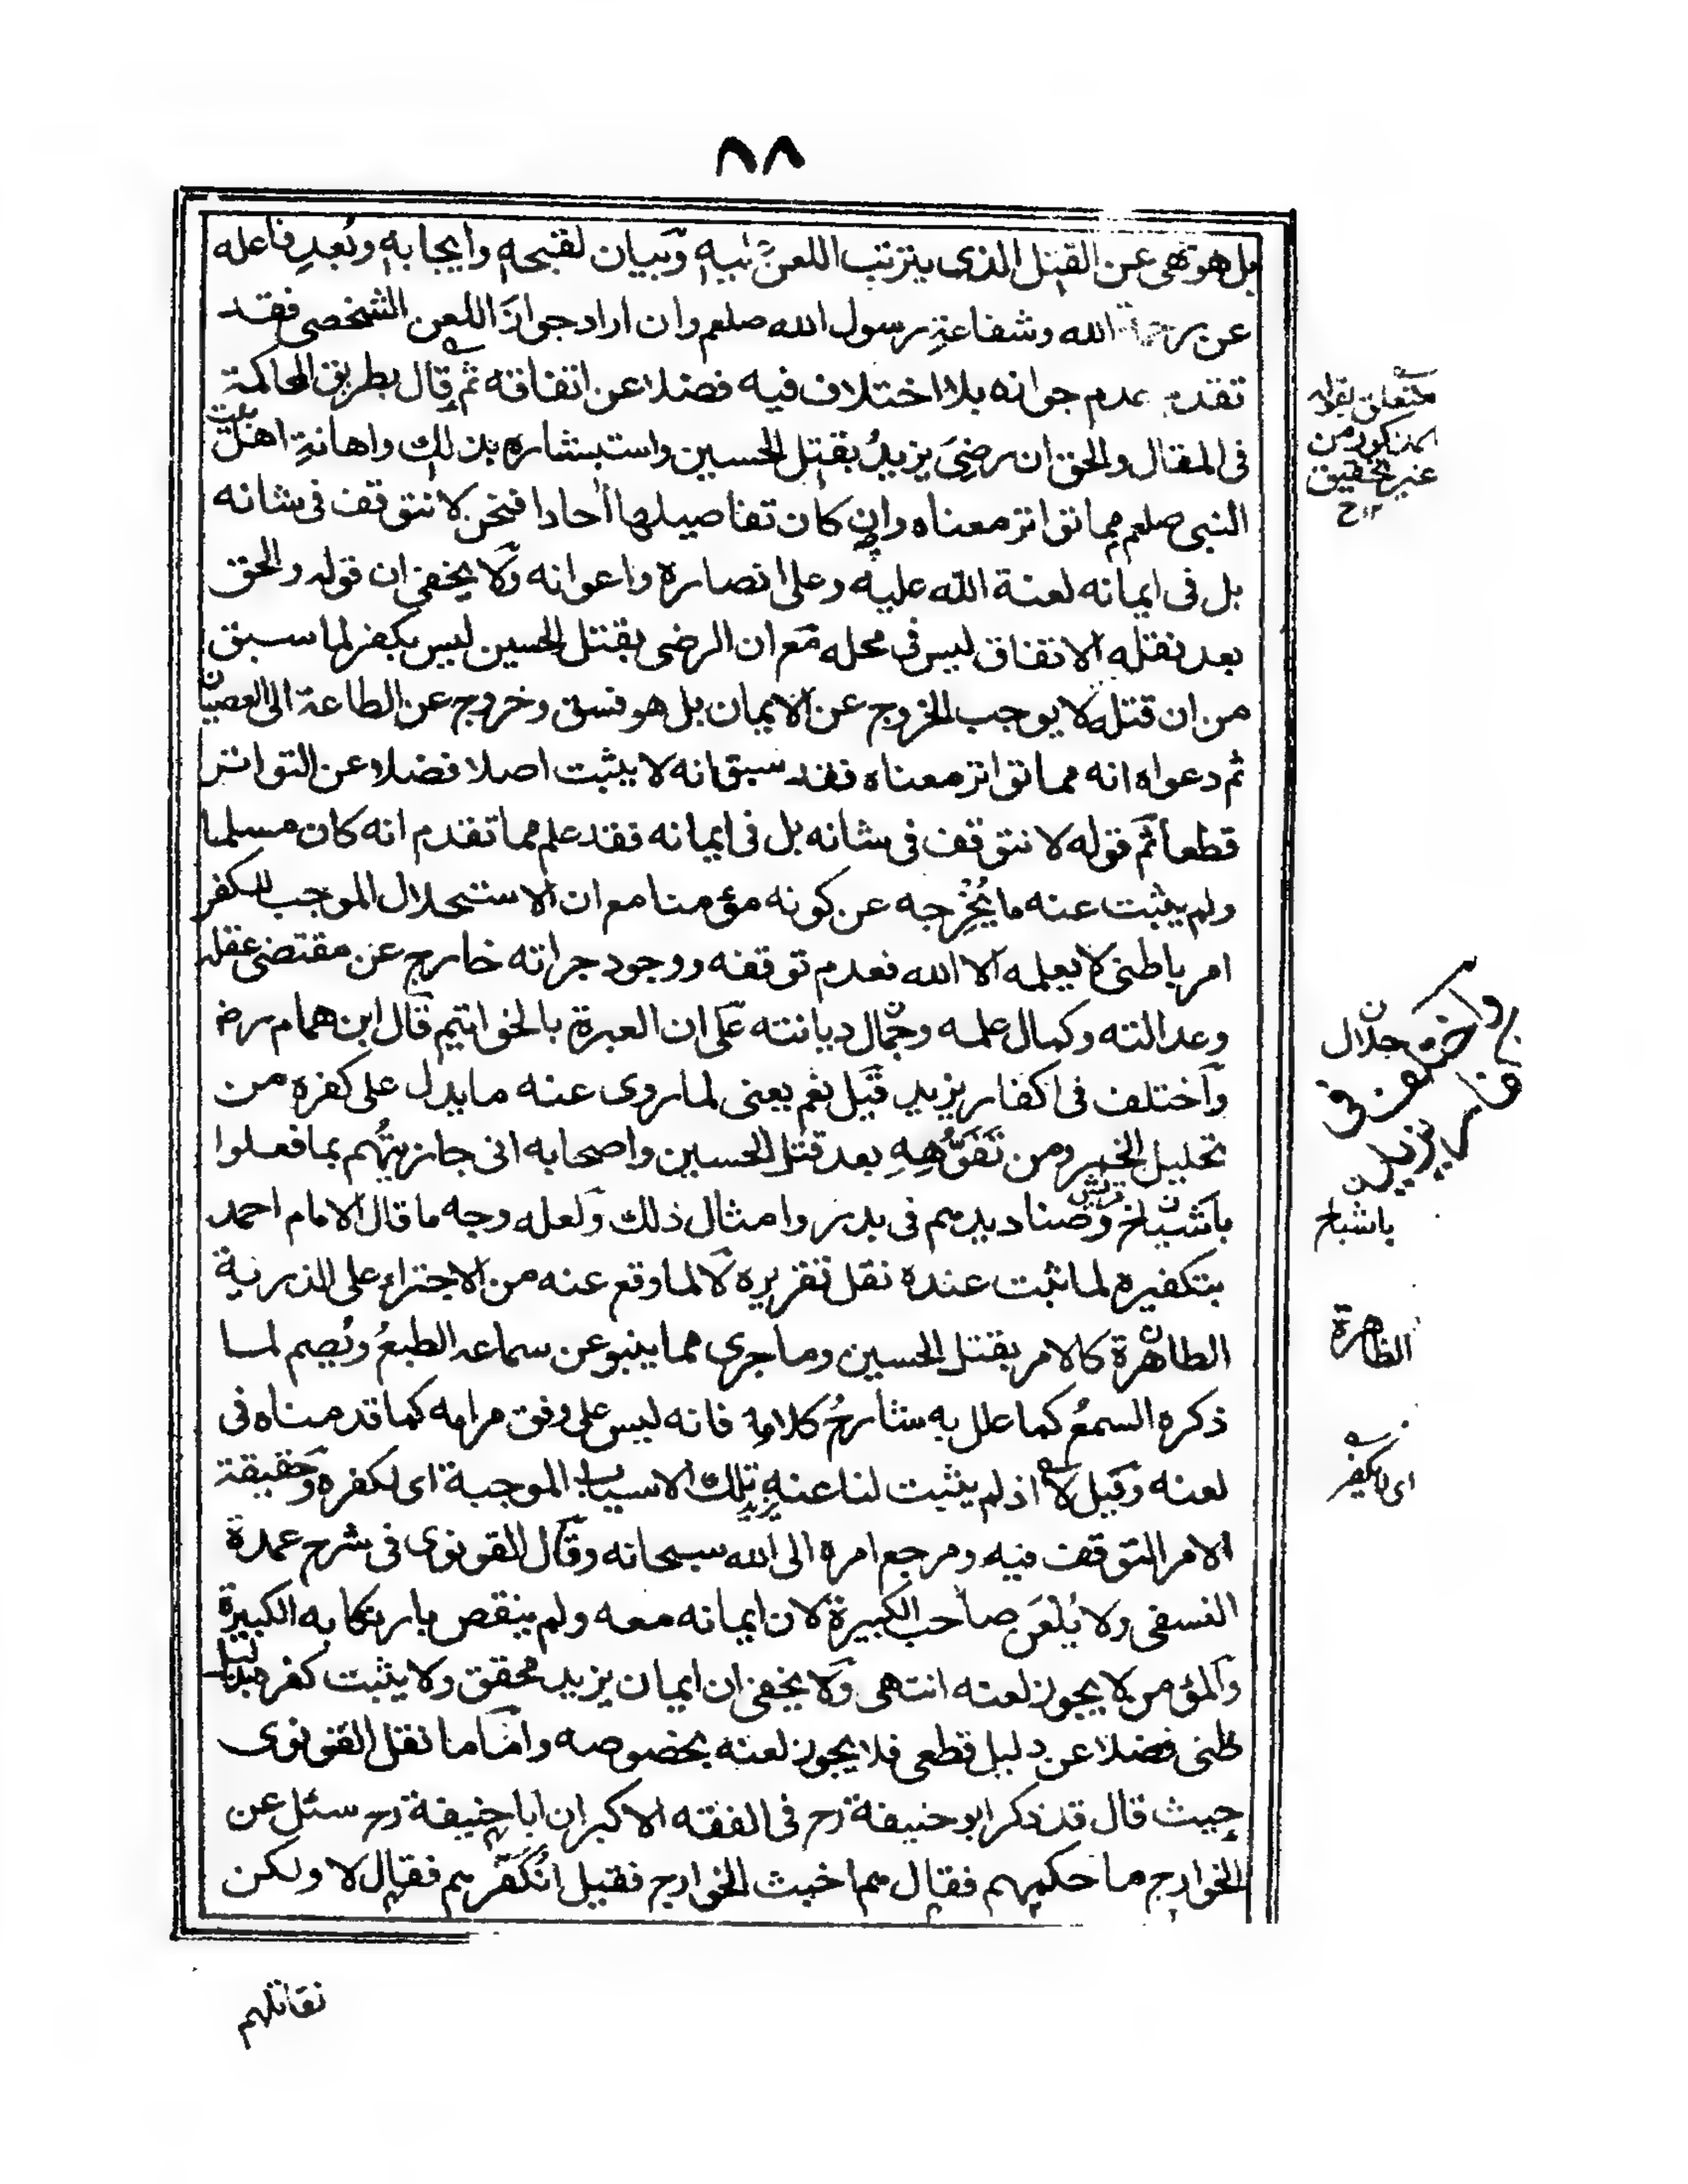 ٨٨
بل هو نهى عن القتل الذى يترتب اللعن عليه وبيان لقبحه وايجابه وبُعدِ فاعله
عن رحمة الله وشفاعةِ رسول الله صلعم وان اراد جوازَ اللعن الشخصى فقد
تقدم عدم جوازه بلا اختلاف فيه فضلا عن اتفاقه ثم قال بطريق المحاكمة
فى المقال والحق ان رضىَ يزيدُ بقتل الحسين واستبشاره بذلك واهانةِ اهل بيت
النبى صلعم مما تواتر معناه وان كان تفاصيلها أحادا فنحن لا نتوقف فى شانه
بل فى ايمانه لعنة الله عليه وعلى انصاره واعوانه ولا يخفى ان قوله والحق
بعد نقله الاتفاق ليس فى محله مع ان الرضى بقتل الحسين ليس بكفر لما سبق
من ان قتله لا يوجب الخروج عن الايمان بل هو فسق وخروج عن الطاعة الى العصيان
ثم دعواه انه مما تواتر معناه فقد سبق انه لا يثبت اصلا فضلا عن التواتر
قطعا ثم قوله لا نتوقف فى شانه بل فى ايمانه فقد علم مما تقدم انه كان مسلما
ولم يثبت عنه ما يُخرِجه عن كونه مؤمنا مع ان الاستحلال الموجب للكفر
امر باطنى لا يعلمه الا الله فعدم توقفه ووجود جراته خارج عن مقتضى عقله
وعدالته وكمال علمه وجمال ديانته على ان العبرة بالخواتيم قال ابن همام رض
واختلف فى اكفار يزيد قيل نعم يعنى لما روى عنه ما يدل على كفره من
تحليل الخمر ومن تَفَوُّهِهِ بعد قتل الحسين واصحابه انى جازيتُهم بما فعلوا
باشياخ قريش وصناديدهم فى بدر وامثال ذلك ولعله وجه ما قال الامام احمد
بتكفيره لما ثبت عنده نقل تقريره لا لما وقع عنه من الاجتراء على الذرية
الطاهرة كالامر بقتل الحسين وما جرى مما ينبو عن سماعه الطبعُ ويُصم لما
ذكره السمعُ كما علل به شارحُ كلامه فانه ليس على وفق مرامه كما قدمناه فى
لعنه وقيل لا اذ لم يثبت لنا عنه تلك الاسباب الموجبة اى لكفره وحقيقة
الامر التوقف فيه ومرجع امره الى الله سبحانه وقال القونوى فى شرح عمدة
النسفى ولا يُلعَن صاحب الكبيرة لان ايمانه معه ولم ينقص بارتكابه الكبيرة
والمؤمن لا يجوز لعنه انتهى ولا يخفى ان ايمان يزيد محقق ولا يثبت كفره بدليل
ظنى فضلا عن دليل قطعى فلا يجوز لعنه بخصوصه واما ما نقل القونوى
حيث قال قد ذكر ابو حنيفة رح فى الفقه الاكبر ان ابا حنيفة رح سئل عن
الخوارج ما حكمهم فقال هم اخبث الخوارج فقيل انُكَفّرهم فقال لا ولكن
نقاتلهم
متعلق بقوله
المذكور من
غير تحقيق
١٢ ح
جلال
واختلف فى
اكفار يزيد
باشياخ
الظاهرة
اى لا يكفر